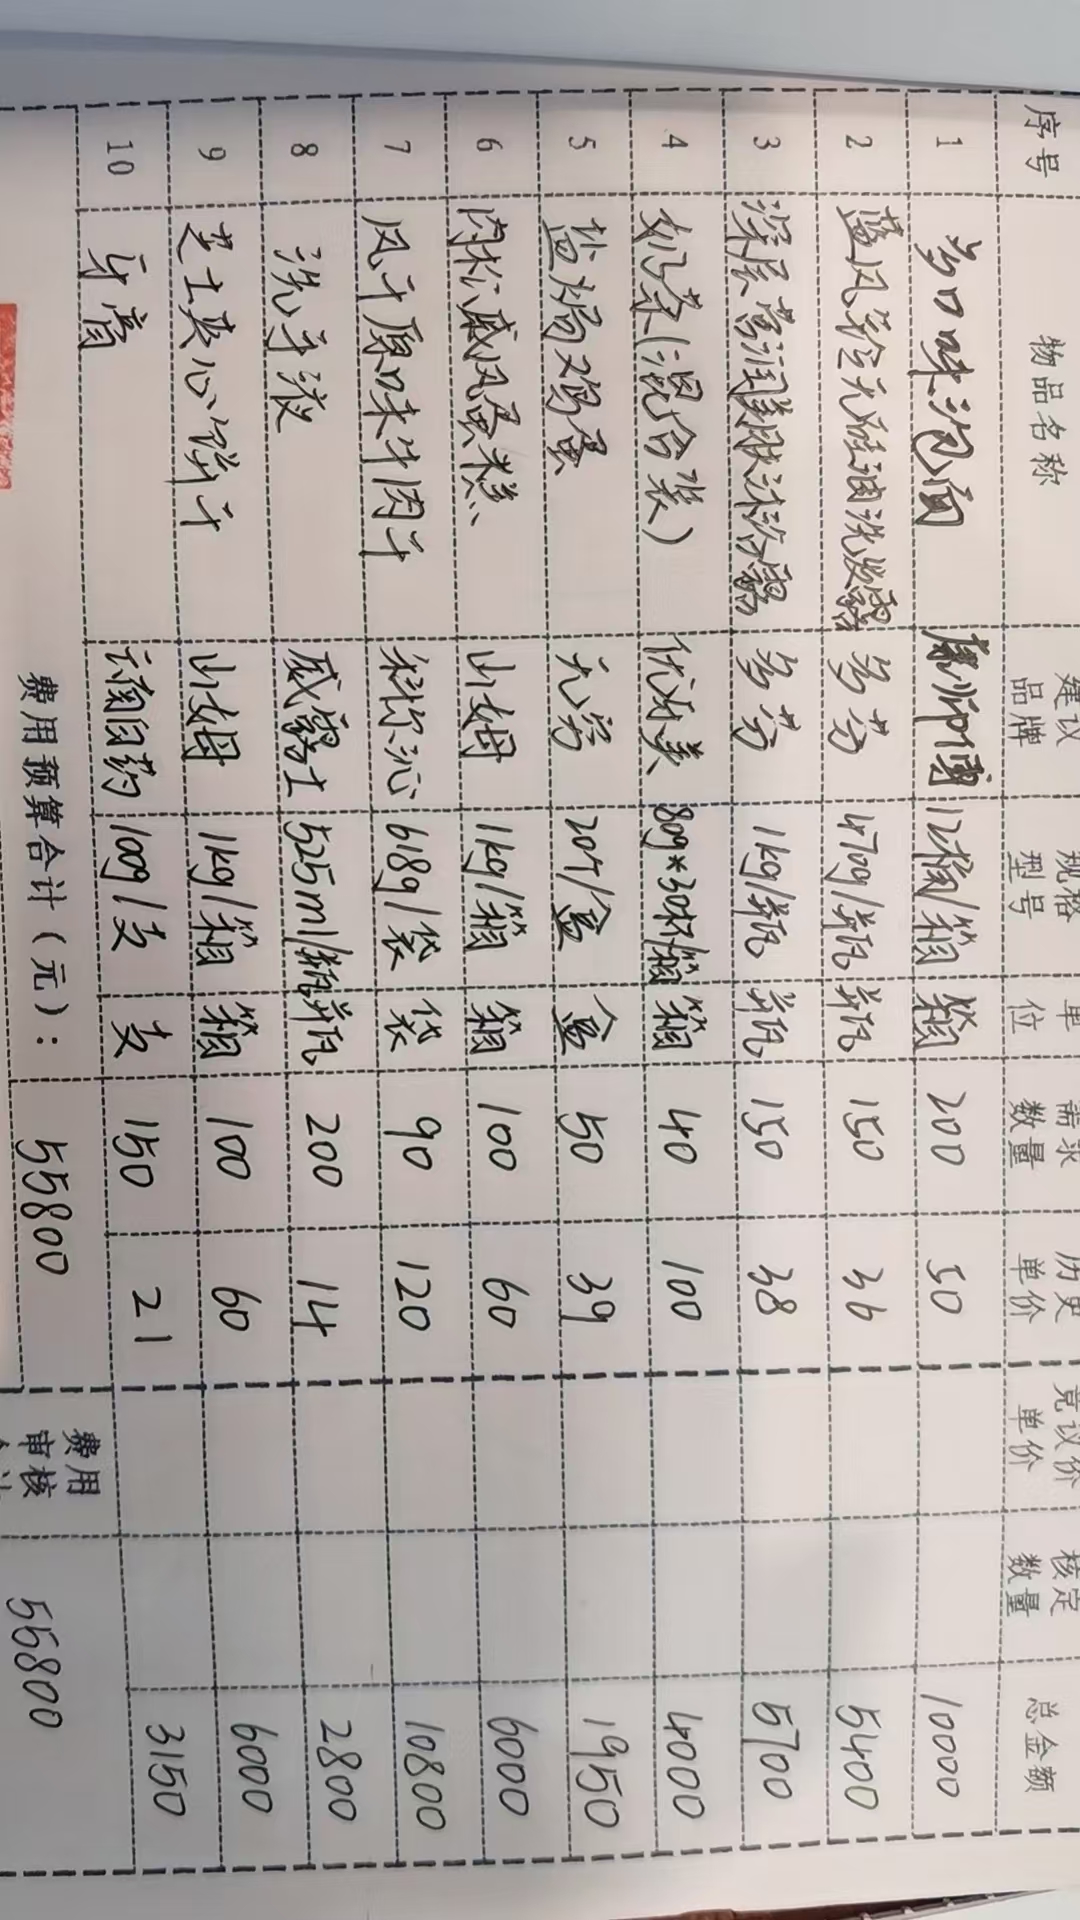 序号 物品名称 建议品牌 规格型号 单位 需求数量 历史单价 竞议价单价 核定数量 总金额
1 多口味泡面 康师傅 12桶/箱 箱 200 50 10000
2 蓝风铃无硅油洗发露 多芬 470g/瓶 瓶 150 36 5400
3 深层营润美肤沐浴露 多芬 1kg/瓶 瓶 150 38 5700
4 奶茶(混合装) 优乐美 80g*30杯/箱 箱 40 100 4000
5 盐焗鸡蛋 无穷 20个/盒 盒 50 39 1950
6 肉松戚风蛋糕 山姆 1kg/箱 箱 100 60 6000
7 风干原味牛肉干 科尔沁 618g/袋 袋 90 120 10800
8 洗手液 威露士 525ml/瓶 瓶 200 14 2800
9 芝士夹心饼干 山姆 1kg/箱 箱 100 60 6000
10 牙膏 云南白药 100g/支 支 150 21 3150
费用预算合计(元): 55800 费用审核 55800